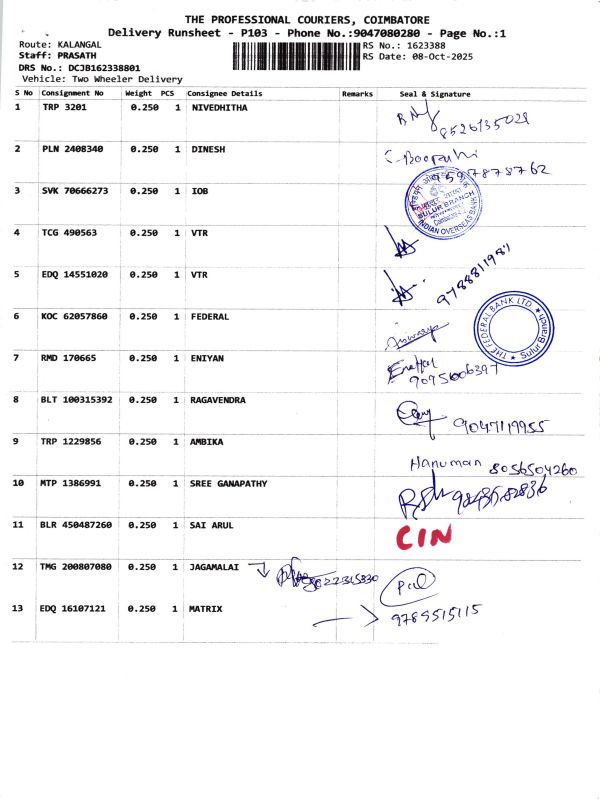 THE PROFESSIONAL COURIERS, COIMBATORE
Delivery Runsheet - P103 - Phone No.:9047080280 - Page No.:1
Route: KALANGAL
RS No.: 1623388
Staff: PRASATH
RS Date: 08-Oct-2025
DRS No.: DCJB162338801
Vehicle: Two Wheeler Delivery
S No Consignment No Weight PCS Consignee Details Remarks Seal & Signature
1 TRP 3201 0.250 1 NIVEDHITHA
8526135028
2 PLN 2408340 0.250 1 DINESH
3 SVK 70666273 0.250 1 IOB
SULUR BRANCH
INDIAN OVERSEAS BANK
4 TCG 490563 0.250 1 VTR
5 EDQ 14551020 0.250 1 VTR
6 KOC 62057860 0.250 1 FEDERAL
THE FEDERAL BANK LTD ★ Sulur Branch ★
7 RMD 170665 0.250 1 ENIYAN
8 BLT 100315392 0.250 1 RAGAVENDRA
9047119955
9 TRP 1229856 0.250 1 AMBIKA
Hanuman 8056504260
10 MTP 1386991 0.250 1 SREE GANAPATHY
11 BLR 450487260 0.250 1 SAI ARUL
CIN
12 TMG 200807080 0.250 1 JAGAMALAI
13 EDQ 16107121 0.250 1 MATRIX
9789515115